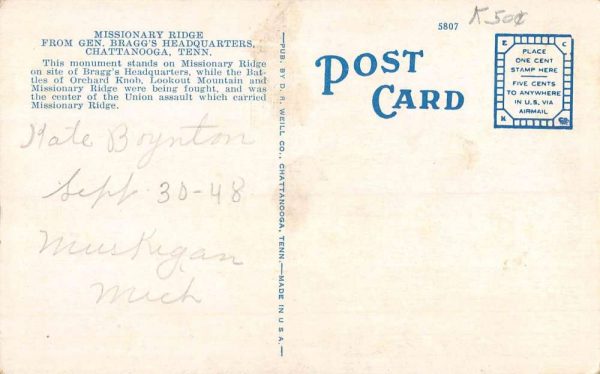 MISSIONARY RIDGE
FROM GEN. BRAGG'S HEADQUARTERS,
CHATTANOOGA, TENN.
This monument stands on Missionary Ridge
on site of Bragg's Headquarters, while the Bat-
tles of Orchard Knob, Lookout Mountain and
Missionary Ridge were being fought, and was
the center of the Union assault which carried
Missionary Ridge.
Kate Boynton
Sept 30-48
Muskigan
Mich
—PUB. BY D. R. WEILL CO., CHATTANOOGA, TENN.—MADE IN U.S.A.—
5807
K 50¢
POST
CARD
E C
PLACE
ONE CENT
STAMP HERE
FIVE CENTS
TO ANYWHERE
IN U.S. VIA
AIRMAIL
K